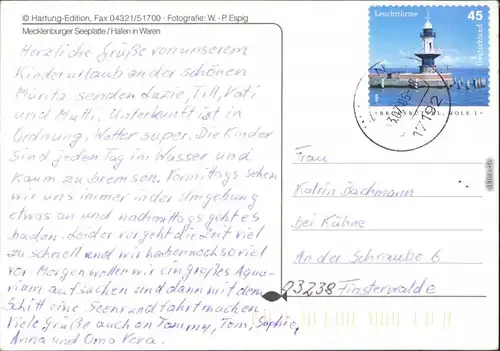 © Hartung-Edition, Fax 04321/51700 · Fotografie: W.-P. Espig
Mecklenburger Seeplatte / Hafen in Waren
Herzliche Grüße von unserem
Kinderurlaub an der schönen
Müritz senden Luzie, Till, Kati
und Mutti. Unterkunft ist in
Ordnung, Wetter super. Die Kinder
sind jeden Tag im Wasser und
kaum zu bremsen. Vormittags sehen
wir uns immer in der Umgebung
etwas an und nachmittags geht es
baden. Leider vergeht die Zeit viel
zu schnell und wir haben noch so viel
vor. Morgen wollen wir ein großes Aqua-
rium aufsuchen und dann mit dem
Schiff eine Seenrundfahrt machen.
Viele Grüße auch an Tommy, Tom, Sophie,
Anna und Oma Vera.
Leuchttürme
45
Deutschland
BRUNSBÜTTEL, MOLE 1
17192
Frau
Katrin Bachmann
bei Kühne
An der Schraube 6
03238 Finsterwalde